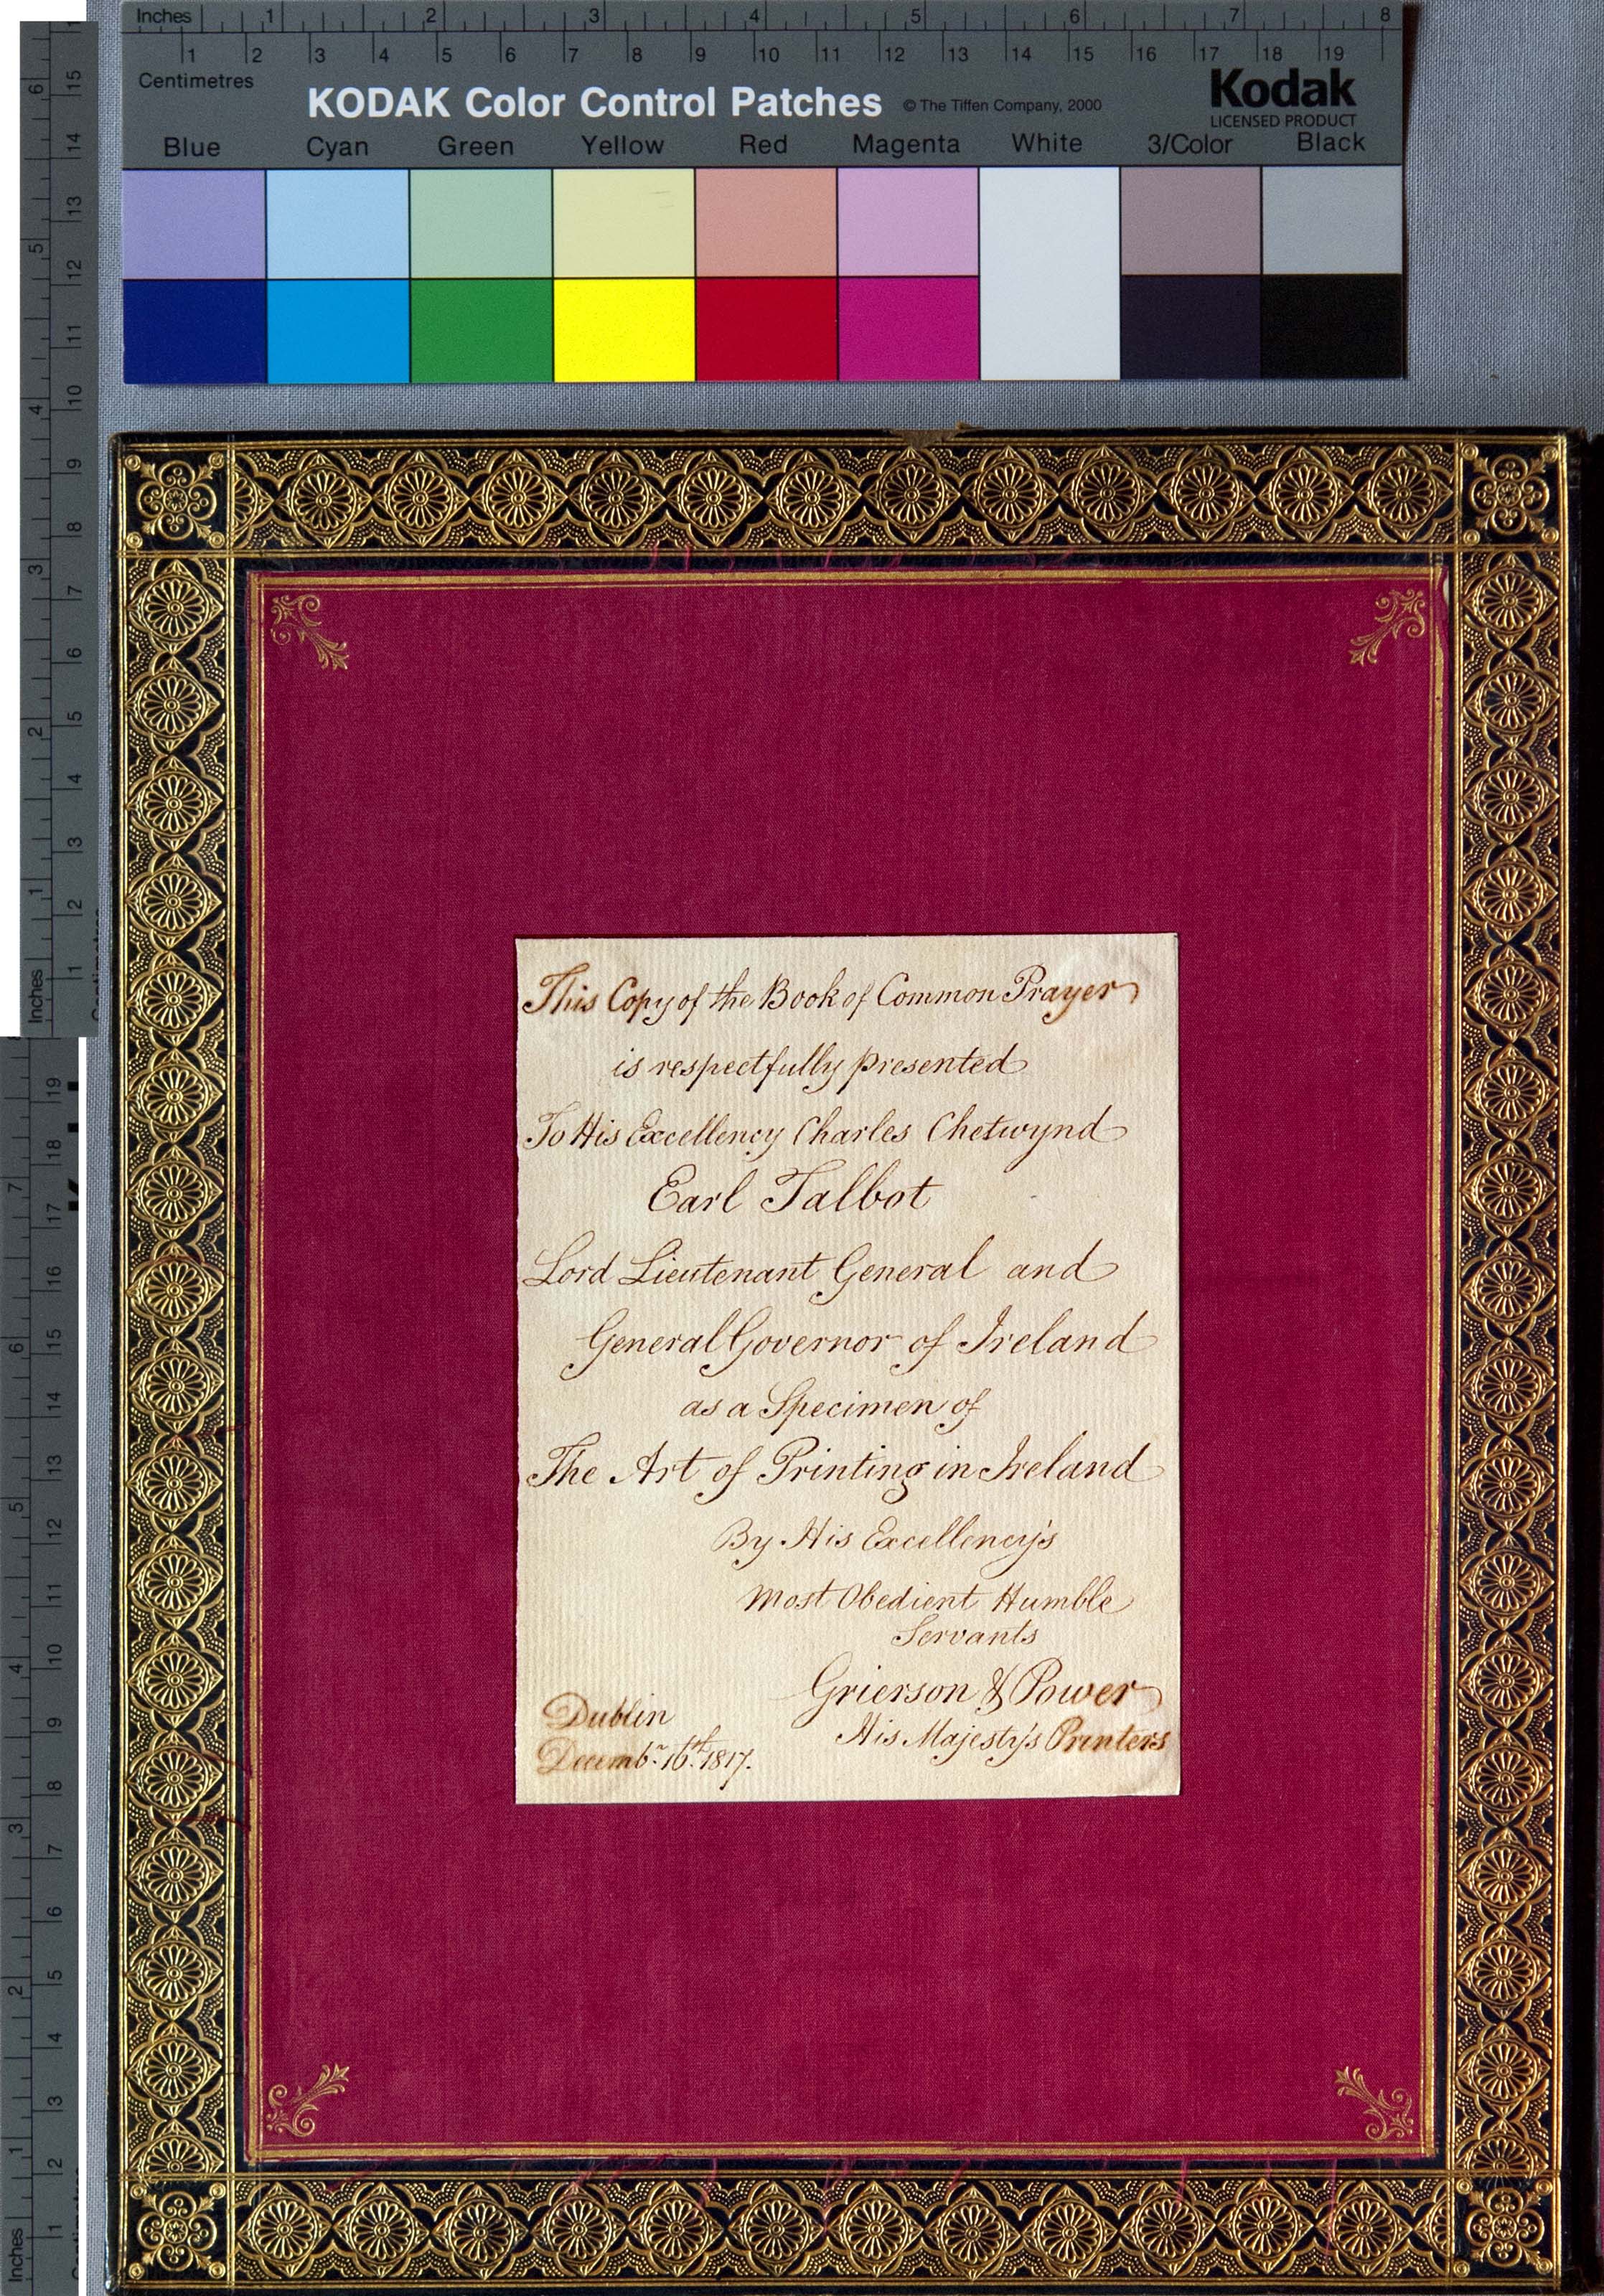 Inches 1 2 3 4 5 6 7 8
1 2 3 4 5 6 7 8 9 10 11 12 13 14 15 16 17 18 19
Centimetres
KODAK Color Control Patches © The Tiffen Company, 2000 Kodak
LICENSED PRODUCT
Blue Cyan Green Yellow Red Magenta White 3/Color Black
This Copy of the Book of Common Prayer
is respectfully presented
To His Excellency Charles Chetwynd
Earl Talbot
Lord Lieutenant General and
General Governor of Ireland
as a Specimen of
The Art of Printing in Ireland
By His Excellency's
Most Obedient Humble
Servants
Grierson & Power
His Majesty's Printers
Dublin
Decembr. 16th. 1817.
Inches 1 2 3 4 5 6
1 2 3 4 5 6 7 8 9 10 11 12 13 14 15
Inches 1 2 3 4 5 6 7
1 2 3 4 5 6 7 8 9 10 11 12 13 14 15 16 17 18 19